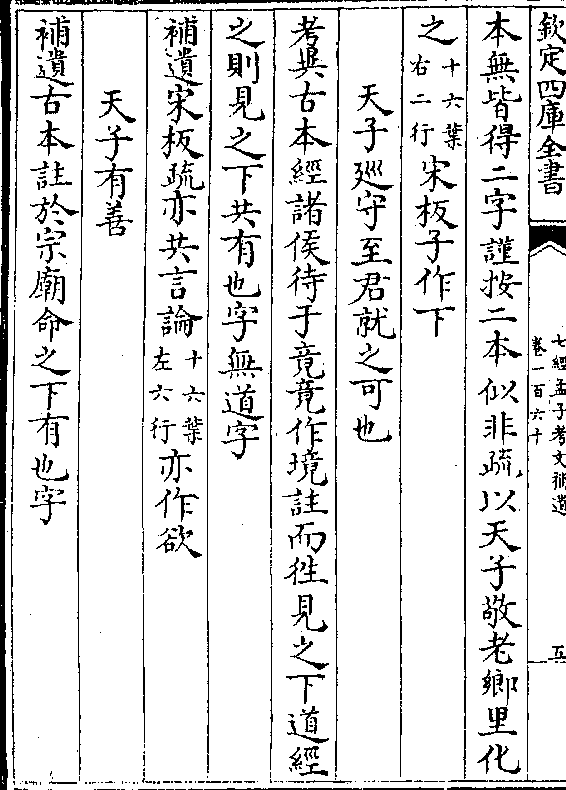 欽定四庫全書
七經孟子考文補遺
卷一百六十
五
本無皆得二字謹按二本似非疏以天子敬老鄉里化
之十六葉右二行宋板子作下
天子廵守至君就之可也
考異古本經諸侯待于竟竟作境註而徃見之下道經
之則見之下共有也字無道字
補遺宋板疏亦共言論十六葉左六行亦作欲
天子有善
補遺古本註於宗廟命之下有也字